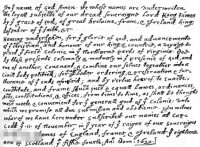 In þe name of god, Amen. We whose names are underwriten,
the loyall subjects of our dread soveraigne Lord King James
by þe grace of god, of great Britaine, franc, & Ireland king,
defender of þe faith, &c.
Haveing undertaken, for þe glorie of god, and advancemente
of þe christian faith, and honour of our king & countrie, a voyage to
plant þe first colonie in þe Northerne parts of Virginia doe
by these presents solemnly & mutualy in þe presence of god, and
one of another, covenant, & combine our selves togeather into a
civill body politick, for our better ordering, & preservation & fur-
therance of þe ends aforesaid; and by vertue hearof to enacte,
constitute, and frame such just & equall Lawes, ordinances,
Acts, constitutions, & offices, from time to time, as shall be thought
most meete & convenient for þe generall good of þe Colonie: unto
which we promise all due submission and obedience. In witnes
wherof we have hereunder subscribed our names at Cap-
Codd þe 11 of November, in þe year of þe raigne of our soveraigne
Lord king James of England, france, & Ireland þe eighteenth
and of Scotland þe fiftie fourth. Ano: Dom. 1620.